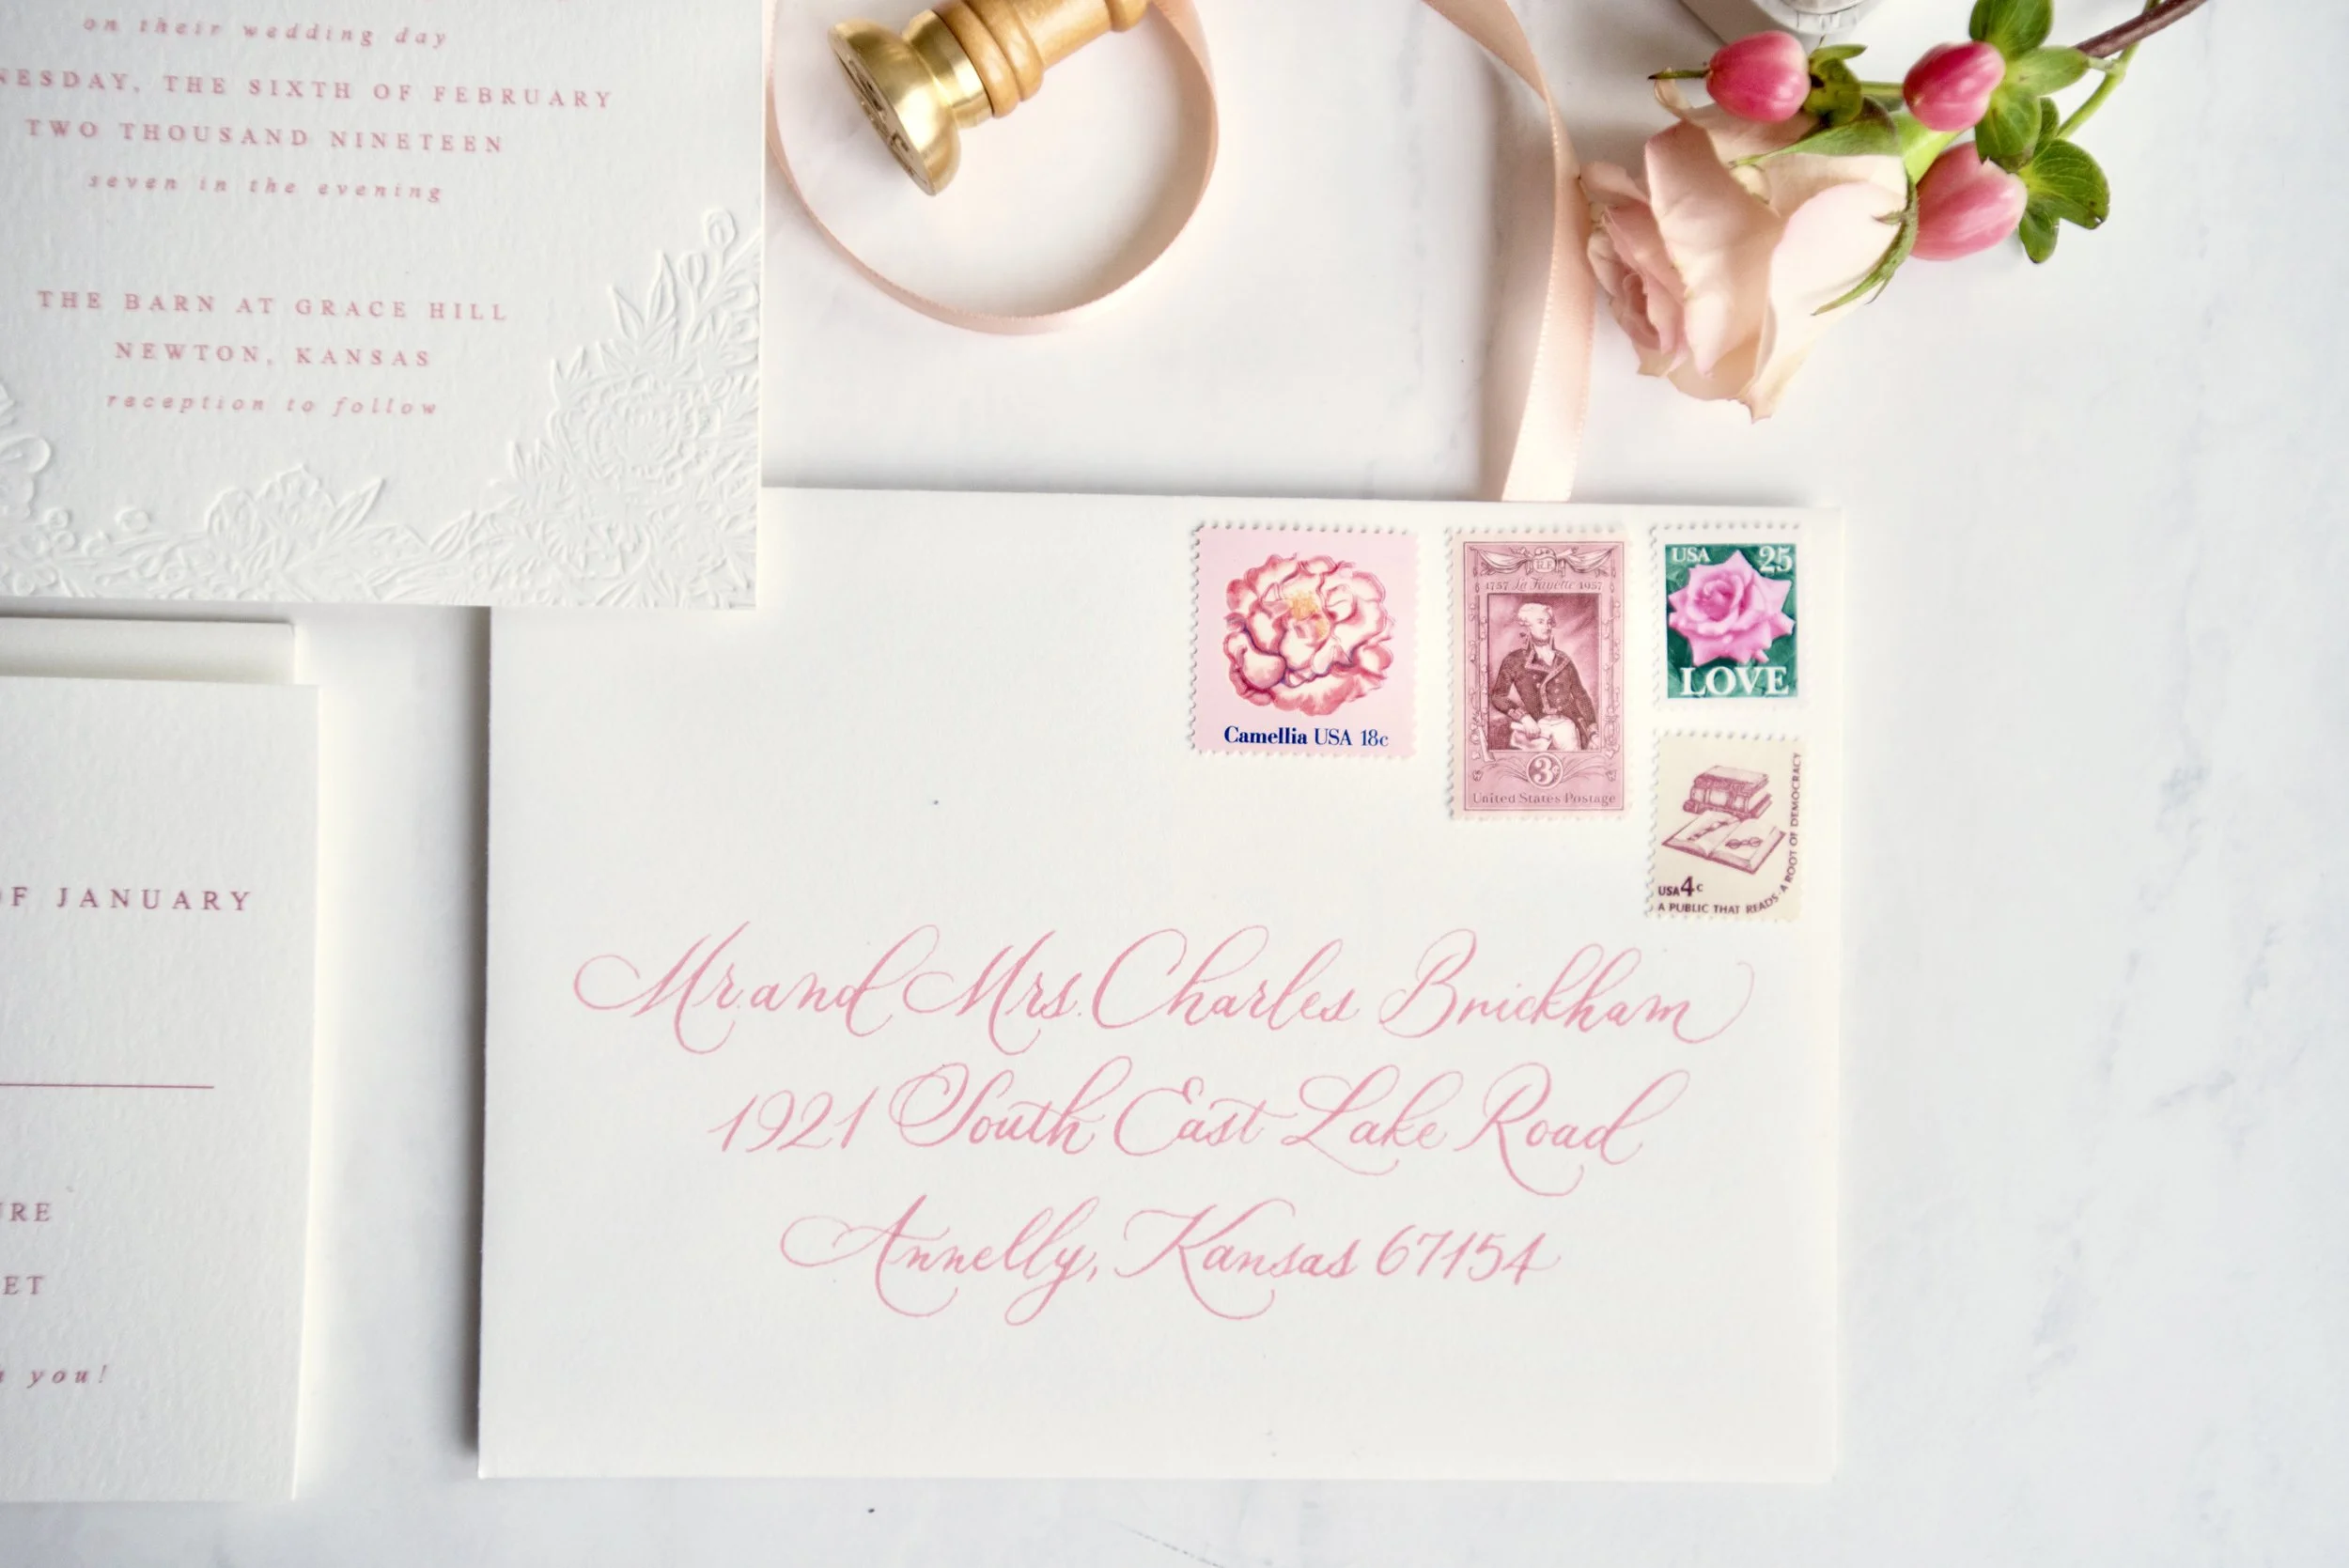 on their wedding day
NESDAY, THE SIXTH OF FEBRUARY
TWO THOUSAND NINETEEN
seven in the evening
THE BARN AT GRACE HILL
NEWTON, KANSAS
reception to follow
OF JANUARY
URE
ET
you!
Camellia USA 18c
R.F.
1757 La Fayette 1957
3¢
United States Postage
USA 25
LOVE
USA 4c
A PUBLIC THAT READS · A ROOT OF DEMOCRACY
Mr. and Mrs. Charles Brickham
1921 South East Lake Road
Annelly, Kansas 67154